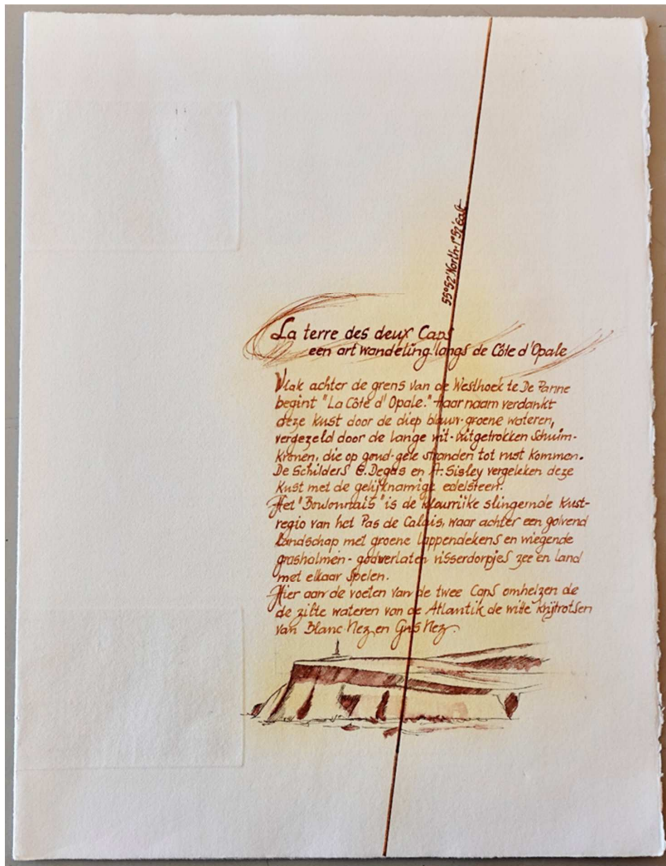 55°52' North - 1°52' East
La terre des deux Caps
een art wandeling langs de Côte d'Opale
Vlak achter de grens van de Westhoek te De Panne
begint "La Côte d'Opale." Haar naam verdankt
deze kust door de diep blauw-groene wateren,
vergezeld door de lange wit-uitgetrokken schuim-
kronen, die op goud-gele stranden tot rust kommen.
De Schilders E. Degas en A. Sisley vergeleken deze
kust met de gelijknamige edelsteen.
Het "Boulonnais" is de kleurrijke slingernde kust-
regio van het Pas de Calais, waar achter een golvend
landschap met groene lappendekens en wiegende
grashalmen - godverlaten visserdorpjes zee en land
met elkaar spelen.
Hier aan de voeten van de twee Caps omhelzen die
de zilte wateren van de Atlantik de witte krijtrotsen
van Blanc Nez en Gris Nez.